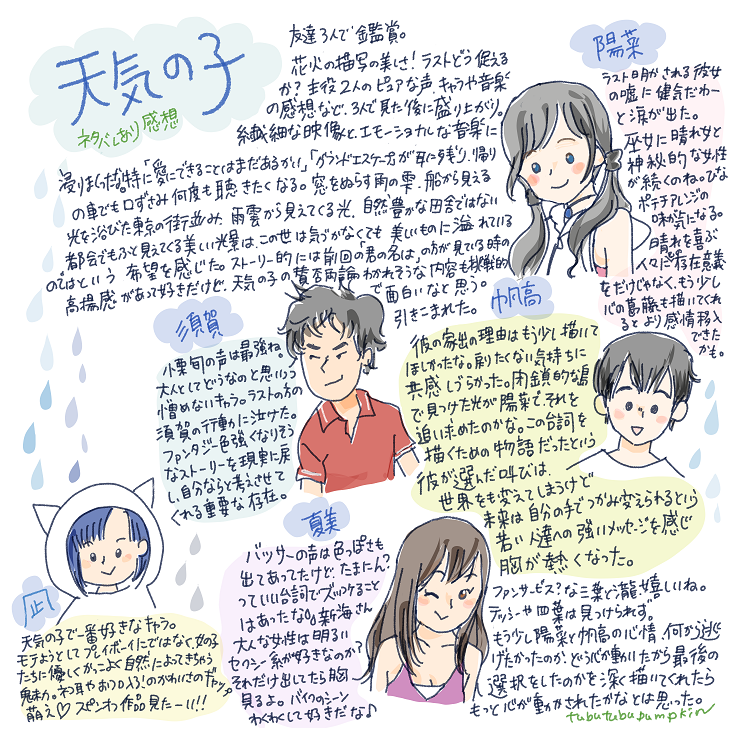 天気の子
ネタバレあり感想
友達3人で鑑賞。
花火の描写の美しさ!ラストどう捉える
か?主役2人のピュアな声、キャラや音楽
の感想など、3人で見た後に盛り上がり。
繊細な映像と、エモーショナルな音楽に
浸りまくった。特に「愛にできることはまだあるかい」「グランドエスケープ」が耳に残り、帰り
の車でも口ずさみ何度も聴きたくなる。窓をぬらす雨の雫、船から見える
光を浴びた東京の街並み、雨雲から見えてくる光、自然豊かな田舎ではない
都会でもふと見えてくる美しい光景は、この世は気づかなくても美しいものに溢れている
のではという希望を感じた。ストーリー的には前回の「君の名は」の方が見ている時の
高揚感があって好きだけど、天気の子の賛否両論わかれそうな内容も挑戦的
で面白いなと思う。
引きこまれた。
陽菜
ラスト明かされる彼女
の嘘に健気だわー
と涙が出た。
巫女に晴れ女と
神秘的な女性
が続くのね。ひな
ポテチアレンジの
味が気になる。
晴れを喜ぶ
人々に存在意義
をだけじゃなく、もう少し
心の葛藤も描いてくれ
るとより感情移入
できた
かも。
須賀
慄旬の声は最強ね。
大人としてどうなのと思いつつ
憎めないキャラ。ラストの方の
須賀の行動に泣けた。
ファンタジー色強くなりそう
なストーリーを現実に戻
し、自分ならと考えさせて
くれる重要な存在。
帆高
彼の家出の理由はもう少し描いて
ほしかったな。帰りたくない気持ちに
共感しづらかった。閉鎖的な島
で見つけた光が陽菜で、それを
追い求めたのかな。この台詞を
描くための物語だったという
彼が選んだ叫びは、
世界をも変えてしまうけど
未来は自分の手でつかみ変えられるという
若い人達への強いメッセージを感じ
胸が熱くなった。
凪
天気の子で一番好きなキャラ。
モテようとしてプレイボーイにではなく、女の子
たちに優しくかっこよく自然によってきちゃう
魅力。ネコ耳やおうい!のかわいさのギャップ
萌え♡スピンオフ作品見たーい!!
夏美
バッサーの声は色っぽさも
出てあってたけど、たまにん?
っていい台詞でズッコケること
はあったな。新海さん
大人な女性は明るい
セクシー系が好きなのか?
それだけ出してたら胸
見るよ。バイクのシーン
わくわくして好きだな♪
ファンサービス?な三葉と瀧、嬉しいね。
テッシーや四葉は見つけられず。
もう少し陽菜と帆高の心情、何から逃
げたかったのか、どう心が動いたから最後の
選択をしたのかを深く描いてくれたら
もっと心が動かされたかなとは思った。
tubutubupumpkin